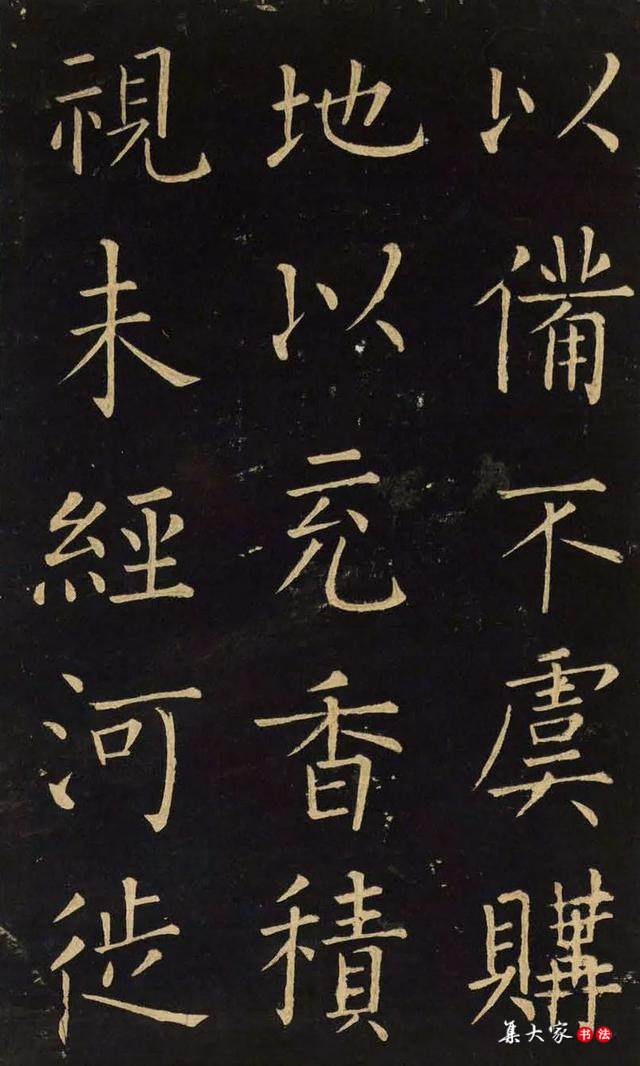 以備不虞購
地以充香積
視未經河徙
集大家书法